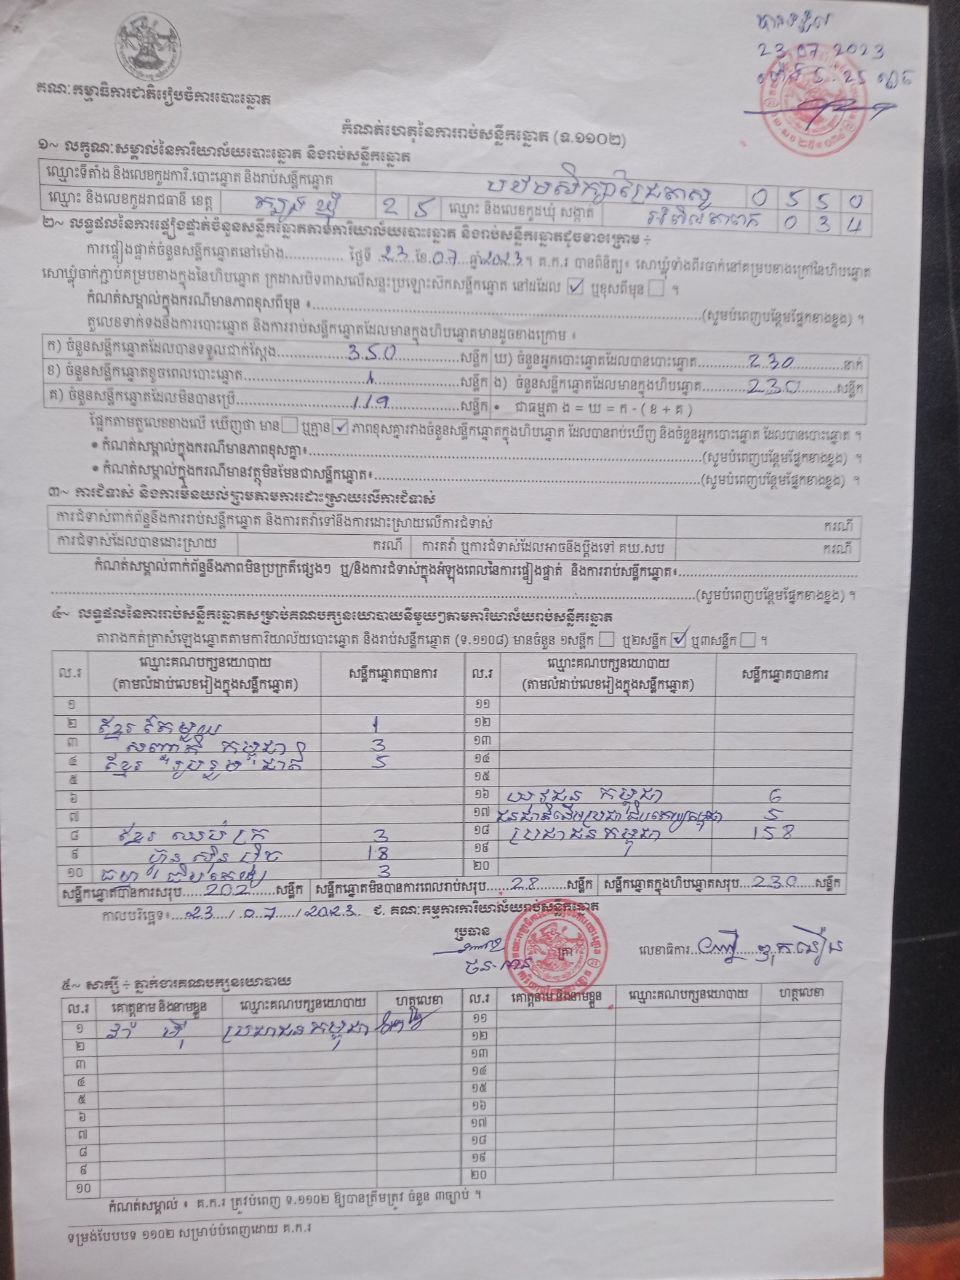 23 07 2023
គណៈកម្មាធិការជាតិរៀបចំការបោះឆ្នោត
កំណត់ហេតុនៃការរាប់សន្លឹកឆ្នោត (ទ.១១០២)
១~ លក្ខណៈសម្គាល់នៃការិយាល័យបោះឆ្នោត និងរាប់សន្លឹកឆ្នោត
ឈ្មោះទីតាំង និងលេខកូដការិ.បោះឆ្នោត និងរាប់សន្លឹកឆ្នោត 0 5 5 0
ឈ្មោះ និងលេខកូដរាជធានី ខេត្ត ត្បូងឃ្មុំ 2 5 ឈ្មោះ និងលេខកូដឃុំ សង្កាត់ 0 3 4
២~ លទ្ធផលនៃការផ្ទៀងផ្ទាត់ចំនួនសន្លឹកឆ្នោតតាមការិយាល័យបោះឆ្នោត និងរាប់សន្លឹកឆ្នោតដូចខាងក្រោម ÷
ការផ្ទៀងផ្ទាត់ចំនួនសន្លឹកឆ្នោតនៅម៉ោង............... ថ្ងៃទី 23 ខែ 07 ឆ្នាំ 2023 ។ គ.ក.រ បានពិនិត្យ៖ សោឃ្លុំទាំងពីរចាក់នៅគម្របខាងក្រៅនៃហិបឆ្នោត
សោឃ្លុំចាក់ភ្ជាប់គម្របខាងក្នុងនៃហិបឆ្នោត ក្រដាសបិទពាសលើសន្ទះប្រឡោះស៊កសន្លឹកឆ្នោត នៅដដែល ☑ ឬខុសពីមុន ☐ ។
កំណត់សម្គាល់ក្នុងករណីមានភាពខុសពីមុន ៖.............(សូមបំពេញបន្ថែមផ្នែកខាងខ្នង) ។
តួលេខទាក់ទងនឹងការបោះឆ្នោត និងការរាប់សន្លឹកឆ្នោតដែលមានក្នុងហិបឆ្នោតមានដូចខាងក្រោម ៖
ក) ចំនួនសន្លឹកឆ្នោតដែលបានទទួលជាក់ស្តែង 350 សន្លឹក ឃ) ចំនួនអ្នកបោះឆ្នោតដែលបានបោះឆ្នោត 230 នាក់
ខ) ចំនួនសន្លឹកឆ្នោតខូចពេលបោះឆ្នោត 1 សន្លឹក ង) ចំនួនសន្លឹកឆ្នោតដែលមានក្នុងហិបឆ្នោត 230 សន្លឹក
គ) ចំនួនសន្លឹកឆ្នោតដែលមិនបានប្រើ 119 សន្លឹក • ជាធម្មតា ង = ឃ = ក - ( ខ + គ )
ផ្អែកតាមតួលេខខាងលើ ឃើញថា មាន ☐ ឬគ្មាន ☑ ភាពខុសគ្នារវាងចំនួនសន្លឹកឆ្នោតក្នុងហិបឆ្នោត ដែលបានរាប់ឃើញ និងចំនួនអ្នកបោះឆ្នោត ដែលបានបោះឆ្នោត ។
• កំណត់សម្គាល់ក្នុងករណីមានភាពខុសគ្នា៖.............(សូមបំពេញបន្ថែមផ្នែកខាងខ្នង) ។
• កំណត់សម្គាល់ក្នុងករណីមានវត្ថុមិនមែនជាសន្លឹកឆ្នោត៖.............(សូមបំពេញបន្ថែមផ្នែកខាងខ្នង) ។
៣~ ការជំទាស់ និងការមិនយល់ព្រមតាមការដោះស្រាយលើការជំទាស់
ការជំទាស់ពាក់ព័ន្ធនឹងការរាប់សន្លឹកឆ្នោត និងការតវ៉ាទៅនឹងការដោះស្រាយលើការជំទាស់ ករណី
ការជំទាស់ដែលបានដោះស្រាយ ករណី ការតវ៉ា ឬការជំទាស់ដែលអាចនឹងប្តឹងទៅ គឃ.សប ករណី
កំណត់សម្គាល់ពាក់ព័ន្ធនឹងភាពមិនប្រក្រតីផ្សេងៗ ឬ/និងការជំទាស់ក្នុងអំឡុងពេលនៃការផ្ទៀងផ្ទាត់ និងការរាប់សន្លឹកឆ្នោត៖.............
(សូមបំពេញបន្ថែមផ្នែកខាងខ្នង) ។
៤~ លទ្ធផលនៃការរាប់សន្លឹកឆ្នោតសម្រាប់គណបក្សនយោបាយនីមួយៗតាមការិយាល័យរាប់សន្លឹកឆ្នោត
តារាងកត់ត្រាសំឡេងឆ្នោតតាមការិយាល័យបោះឆ្នោត និងរាប់សន្លឹកឆ្នោត (ទ.១១០៨) មានចំនួន ១សន្លឹក ☐ ឬ២សន្លឹក ☑ ឬ៣សន្លឹក ☐ ។
ល.រ ឈ្មោះគណបក្សនយោបាយ (តាមលំដាប់លេខរៀងក្នុងសន្លឹកឆ្នោត) សន្លឹកឆ្នោតបានការ ល.រ ឈ្មោះគណបក្សនយោបាយ (តាមលំដាប់លេខរៀងក្នុងសន្លឹកឆ្នោត) សន្លឹកឆ្នោតបានការ
១ ១១
២ ខ្មែរតែមួយ 1 ១២
៣ សញ្ជាតិកម្ពុជា 3 ១៣
៤ ខ្មែររួបរួមជាតិ 5 ១៤
៥ ១៥
៦ ១៦ យុវជនកម្ពុជា 6
៧ ១៧ ជនជាតិដើមប្រជាធិបតេយ្យកម្ពុជា 5
៨ ខ្មែរឈប់ក្រ 3 ១៨ ប្រជាជនកម្ពុជា 158
៩ ហ្វ៊ុនស៊ិនប៉ិច 18 ១៩
១០ 3 ២០
សន្លឹកឆ្នោតបានការសរុប 202 សន្លឹក សន្លឹកឆ្នោតមិនបានការពេលរាប់សរុប 28 សន្លឹក សន្លឹកឆ្នោតក្នុងហិបឆ្នោតសរុប 230 សន្លឹក
កាលបរិច្ឆេទ៖ 23 / 07 / 2023 ជ. គណៈកម្មការការិយាល័យរាប់សន្លឹកឆ្នោត
ប្រធាន ត្រា លេខាធិការ
៥~ សាក្សី ÷ ភ្នាក់ងារគណបក្សនយោបាយ
ល.រ គោត្តនាម និងនាមខ្លួន ឈ្មោះគណបក្សនយោបាយ ហត្ថលេខា ល.រ គោត្តនាម និងនាមខ្លួន ឈ្មោះគណបក្សនយោបាយ ហត្ថលេខា
១ ប្រជាជនកម្ពុជា ១១
២ ១២
៣ ១៣
៤ ១៤
៥ ១៥
៦ ១៦
៧ ១៧
៨ ១៨
៩ ១៩
១០ ២០
កំណត់សម្គាល់ ៖ គ.ក.រ ត្រូវបំពេញ ទ.១១០២ ឱ្យបានត្រឹមត្រូវ ចំនួន ៣ច្បាប់ ។
ទម្រង់បែបបទ ១១០២ សម្រាប់បំពេញដោយ គ.ក.រ